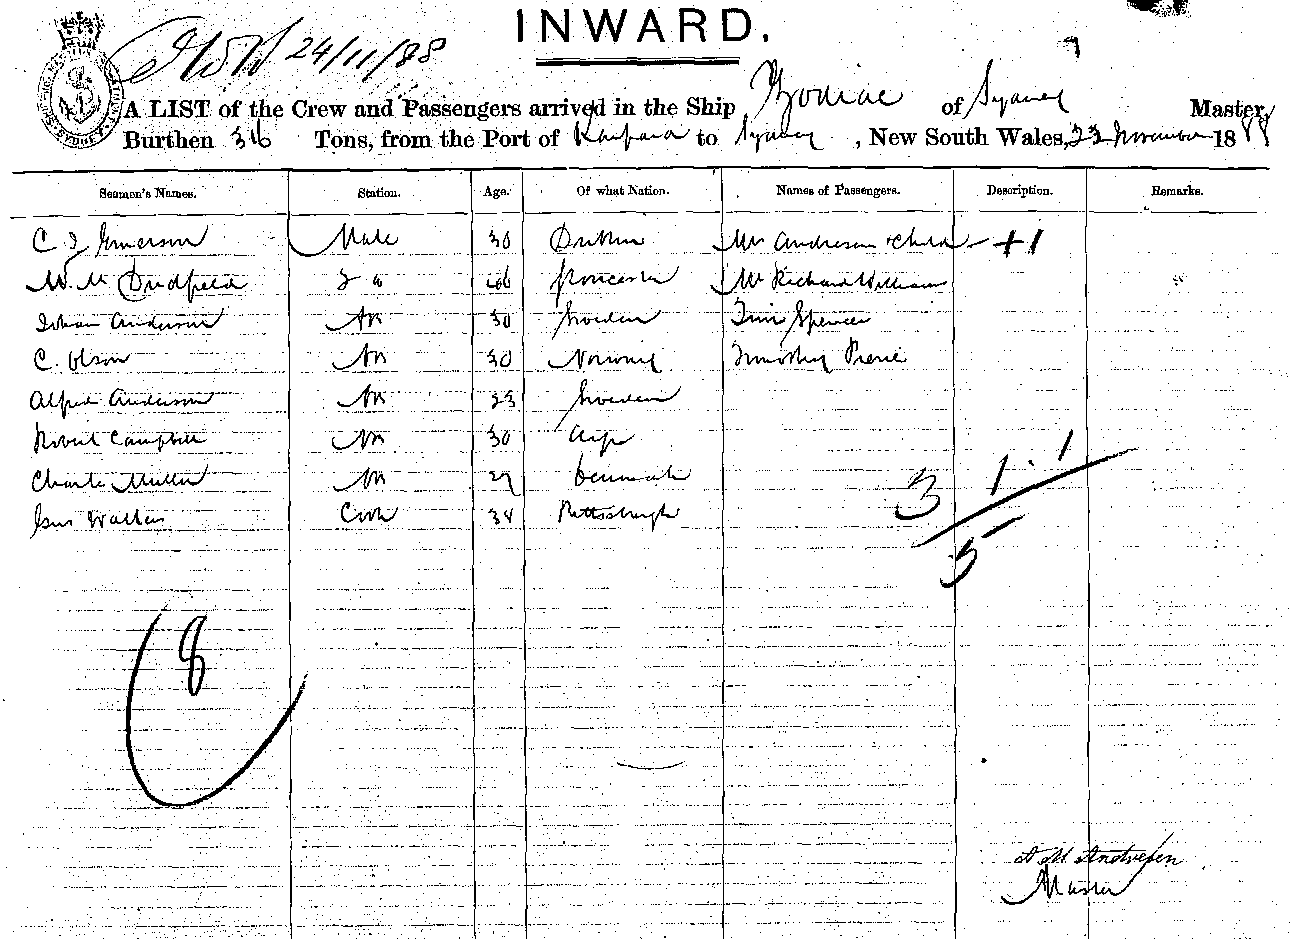 INWARD.
24/11/88
A LIST of the Crew and Passengers arrived in the Ship Zodiac of Sydney Master,
Burthen 316 Tons, from the Port of Kaipara to Sydney, New South Wales, 23 November 1888
Seamen's Names. Station. Age. Of what Nation. Names of Passengers. Description. Remarks.
C J Emerson Mate 30 Dublin Mrs Anderson + Child - + 1
W. M Dudfield 2 Doncaster Mr Richard Williams
Johan Anderson AB 30 Sweden Tim Spencer
C. Olson AB 30 Norway Timothy Pierce
Alfred Anderson AB 23 Sweden
Robert Campbell AB 30
Charles Miller AB 29 Denmark
Gus Wallin Cook 34 Pittsburgh
3 1 . 1
5
8
A M Andresen
Master